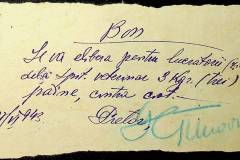 Bon
Se va elibera pentru lucrătorii
dela Spit. veterinar 3 Kgr. (trei)
paine, contra cost.
943. Pretor,